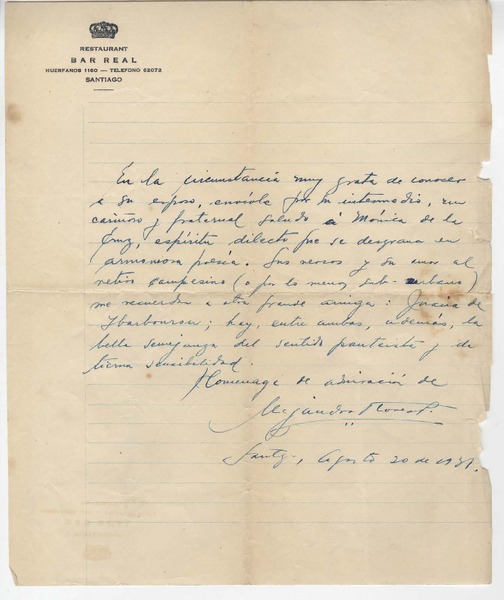 RESTAURANT
BAR REAL
HUERFANOS 1160 — TELEFONO 62072
SANTIAGO
En la circunstancia muy grata de conocer
a su esposo, envíole por su intermedio, un
cariñoso y fraternal saludo á Mónica de la
Cruz, espíritu dilecto que se desgrana en
armoniosa poesía. Sus versos y su amor al
retiro campesino (o por lo menos sub-urbano)
me recuerdan a otra grande amiga: Juana de
Ibarbourou; hay, entre ambas, además, la
bella semejanza del sentido panteista y de
tierna sensibilidad.
Homenage de admiración de
Alejandro Flores.
Santgo, Agosto 20 de 1939.